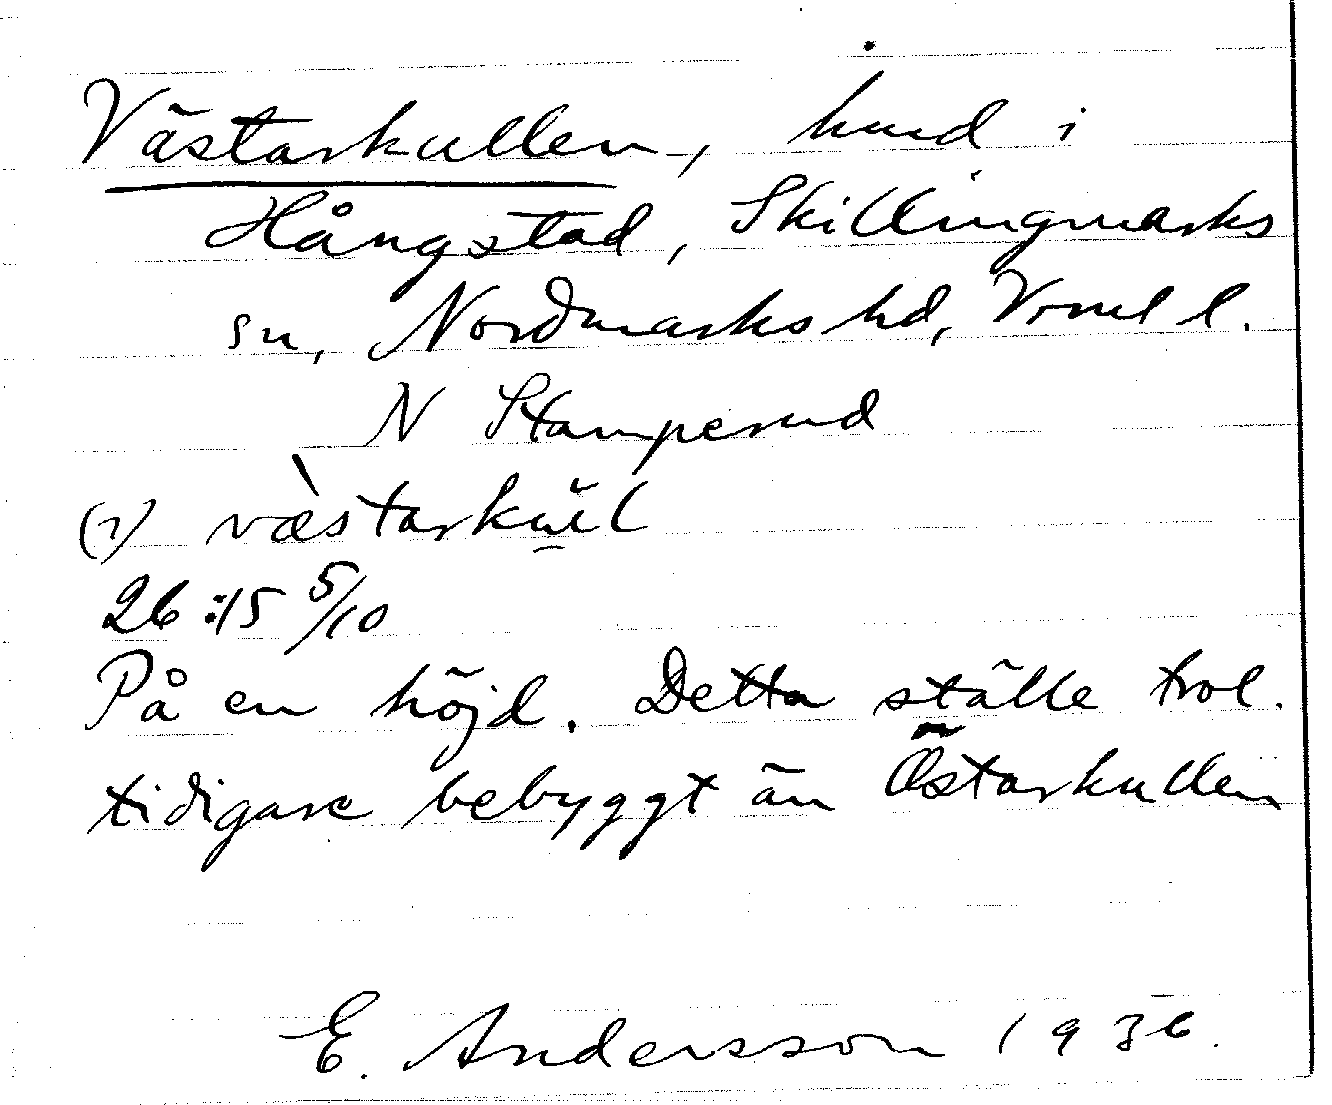 Västarkullen, hmd i
Hångstad, Skillingmarks
sn, Nordmarks hd, Vrml l.
N Stamperud
(2) væ̀starkŭl
26:15 5/10
På en höjd. Detta ställe trol.
tidigare bebyggt än Östarkullen
E. Andersson 1936.